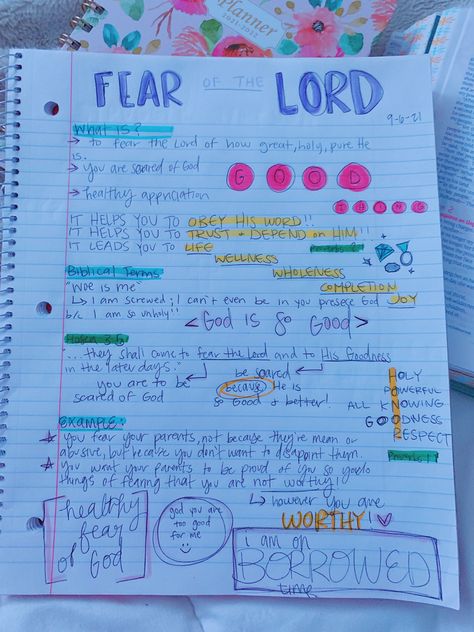 Planner
2021-2022
FEAR OF THE LORD
9-6-21
What is?
→ to fear the Lord of how great, holy, pure He
is.
→ you are scared of God
GOOD
→ healthy appriciation
THING
IT HELPS YOU TO OBEY HIS WORD!!
IT HELPS YOU TO TRUST + DEPEND ON HIM!!
IT LEADS YOU TO LIFE
Proverbs
WELLNESS
Biblical Terms
WHOLENESS
COMPLETION
"Woe is me"
JOY
↳ I am screwed; I can't even be in you presese God
b/c I am so unholy!!
<GOD IS SO GOOD>
Hosea 3:5
"...they shall come to fear the Lord and to His goodness
in the latter days."
you are to be
scared of God
be scared
because He is
so Good & better!
HOLY
POWERFUL
ALL KNOWING
GOODNESS
RESPECT
Proverbs 1
Example:
☆ you fear your parents, not because they're mean or
abusive, but because you don't want to disappoint them.
☆ You want your parents to be proud of you so you do
things of fearing that you are not worthy!
↳ however you are
WORTHY!
healthy
fear
of
God
god you are
too good
for me
i am on
BORROWED
time